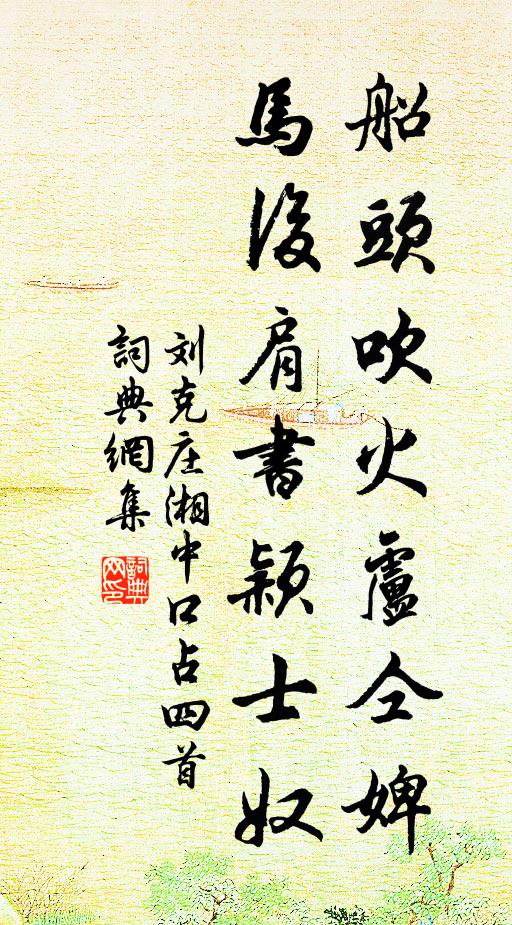 船頭吹火盧仝婢
馬後肩書穎士奴
刘克庄湘中口占四首
詞典網集
詞典
网印